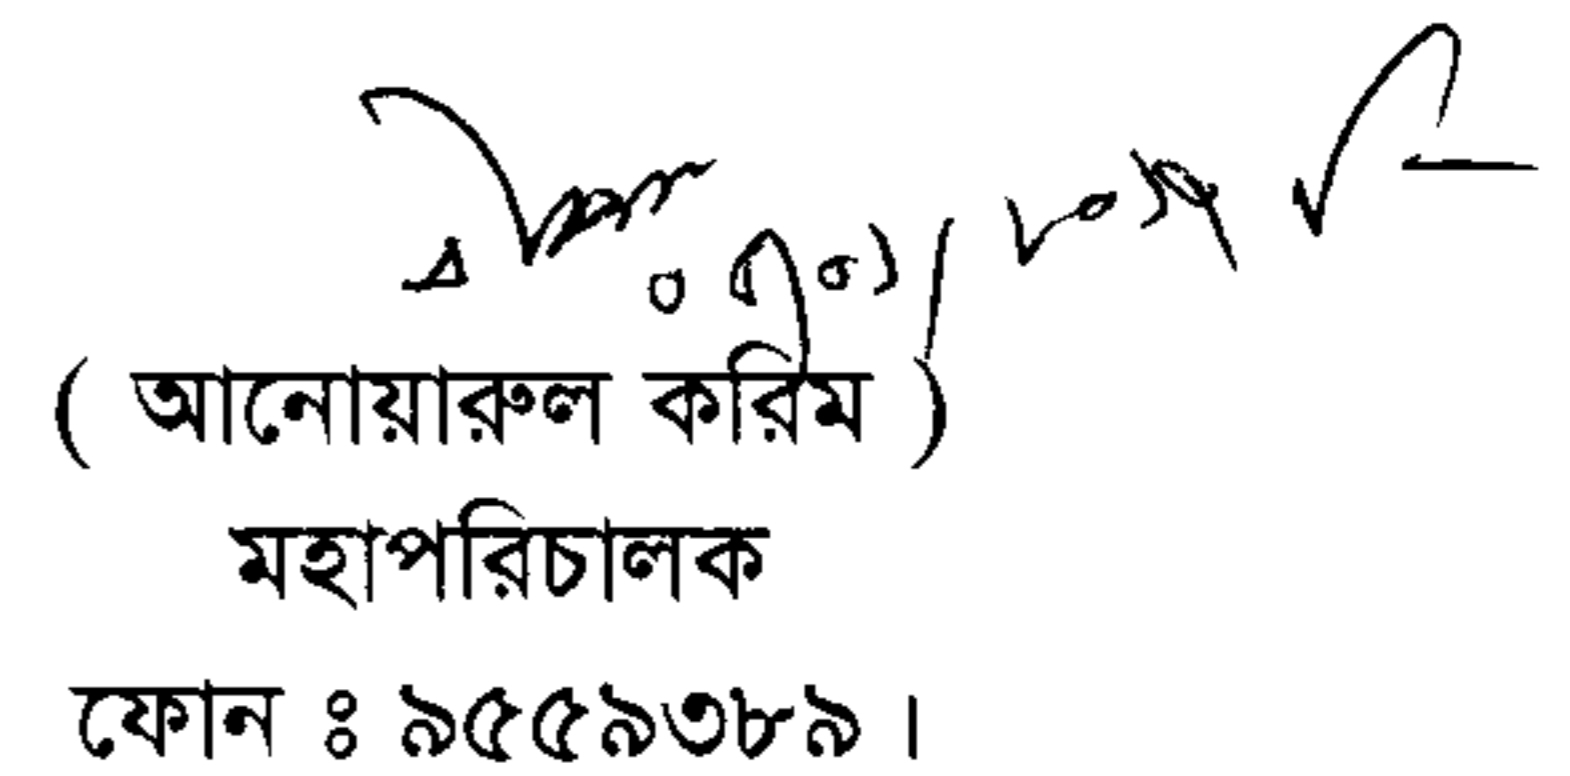 ( আনোয়ারুল করিম )
মহাপরিচালক
ফোন ঃ ৯৫৫৯৩৮৯।